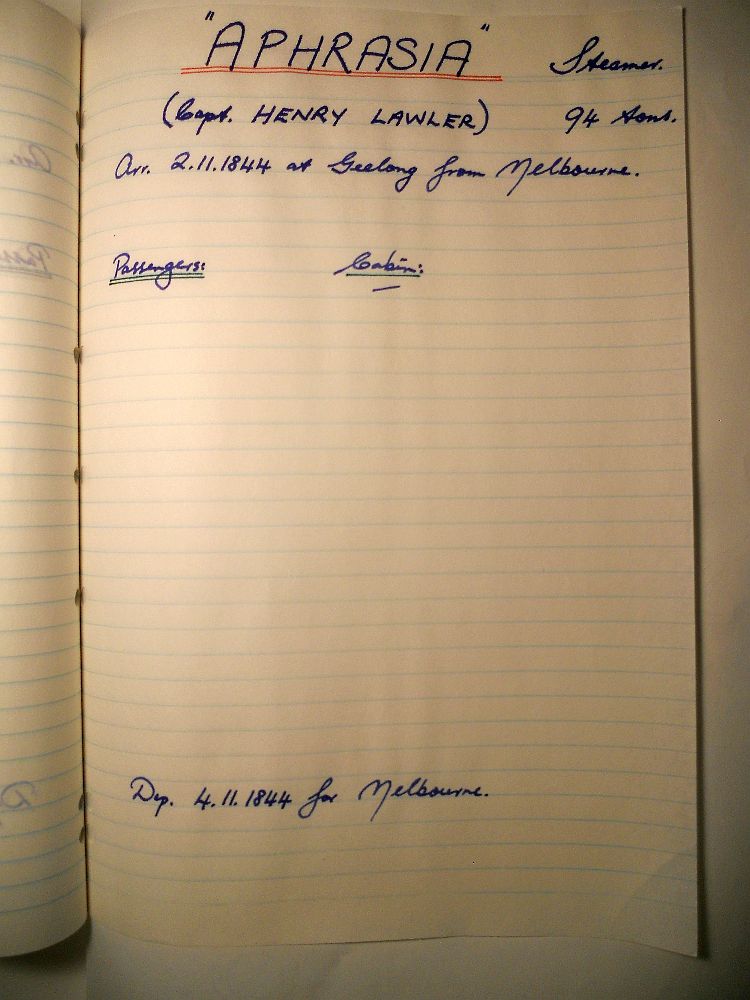 "APHRASIA" Steamer.
(Capt. HENRY LAWLER) 94 tons.
Arr. 2.11.1844 at Geelong from Melbourne.
Passengers: Cabin:
Dep. 4.11.1844 for Melbourne.